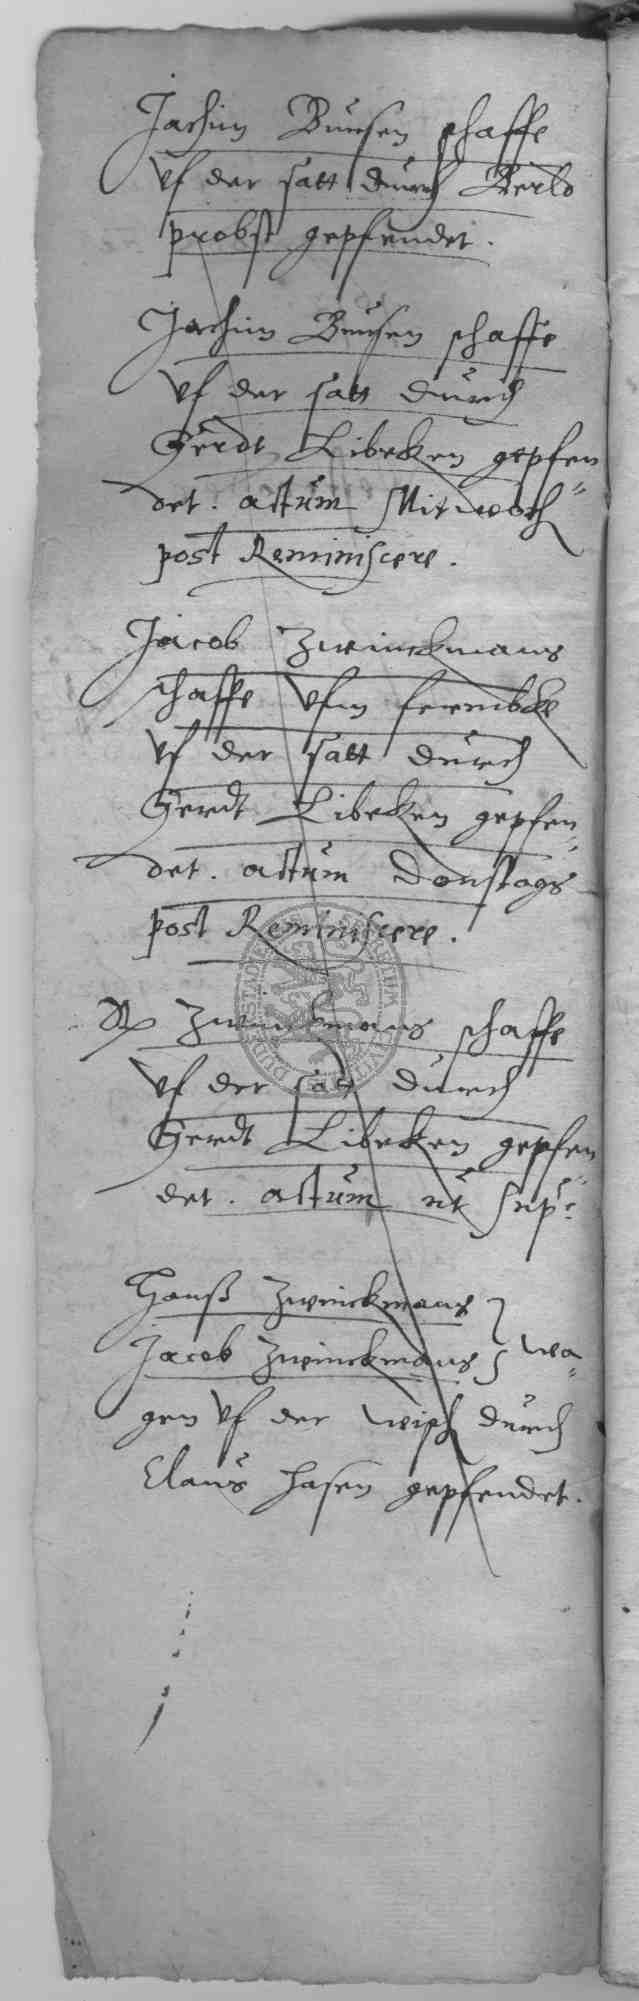 Jachim Bunsen schaffe
vf der satt durch Berld
probst gepfendet.
Jachim Bunsen schaffe
vf der satt durch
Gerdt Libeken gepfen
det. actum Mitwoch
post Reminiscere.
Jacob Zwinckmans
schaffe vfm
vf der satt durch
Gerdt Libeken gepfen
det. actum Donstags
post Reminiscere.
Zwinckmans schaffe
vf der satt durch
Gerdt Libeken gepfen
det. actum ut sup.
Hanß Zwinckmans
Jacob Zwinckmans wa
gen vf der wisch durch
Claus Hasen gepfendet.